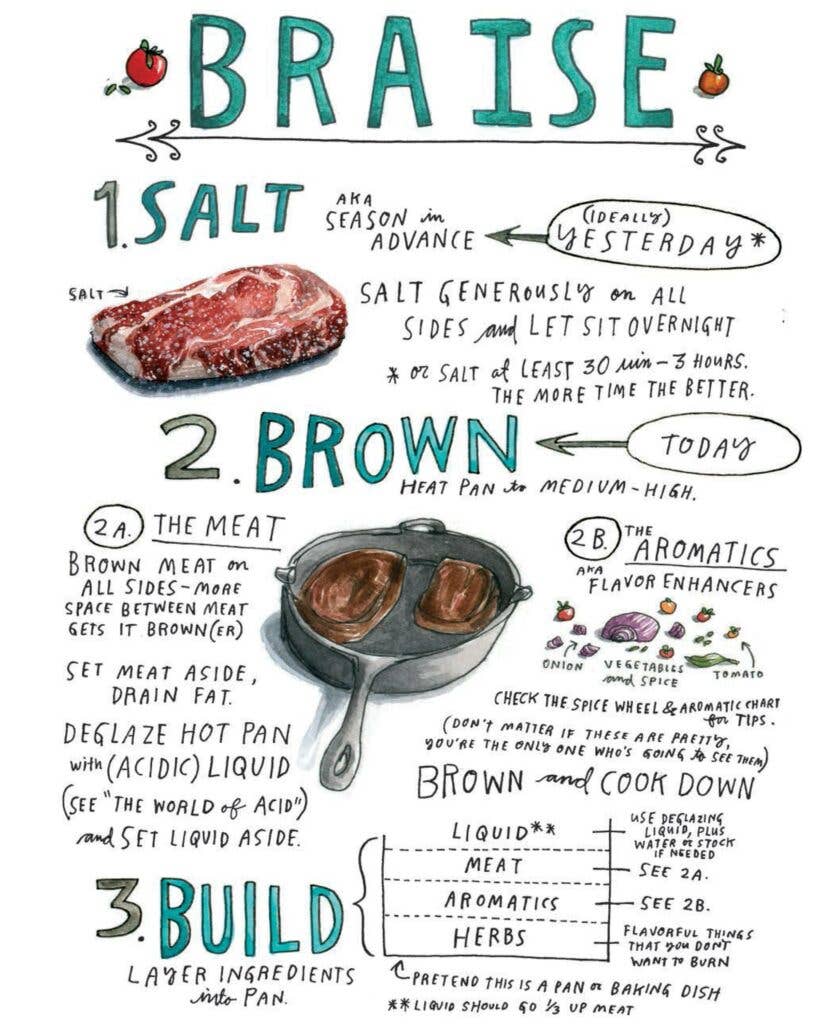 BRAISE
1. SALT
AKA
SEASON in
ADVANCE
(IDEALLY)
YESTERDAY*
SALT
SALT GENEROUSLY on ALL
SIDES and LET SIT OVERNIGHT
* or SALT at LEAST 30 min - 3 HOURS.
THE MORE TIME THE BETTER.
2. BROWN
TODAY
HEAT PAN to MEDIUM-HIGH.
2A. THE MEAT
BROWN MEAT on
ALL SIDES - MORE
SPACE BETWEEN MEAT
GETS IT BROWN(ER)
SET MEAT ASIDE,
DRAIN FAT.
DEGLAZE HOT PAN
with (ACIDIC) LIQUID
(SEE "THE WORLD of ACID")
and SET LIQUID ASIDE.
2B. THE
AROMATICS
AKA
FLAVOR ENHANCERS
ONION
VEGETABLES
and SPICE
TOMATO
CHECK THE SPICE WHEEL & AROMATIC CHART
for TIPS.
(DON'T MATTER IF THESE ARE PRETTY,
YOU'RE THE ONLY ONE WHO'S GOING to SEE THEM)
BROWN and COOK DOWN
3. BUILD
LAYER INGREDIENTS
into PAN.
LIQUID**
USE DEGLAZING
LIQUID, PLUS
WATER or STOCK
IF NEEDED
MEAT
SEE 2A.
AROMATICS
SEE 2B.
HERBS
FLAVORFUL THINGS
THAT you DON'T
WANT to BURN
PRETEND THIS IS A PAN or BAKING DISH
** LIQUID SHOULD GO 1/3 UP MEAT